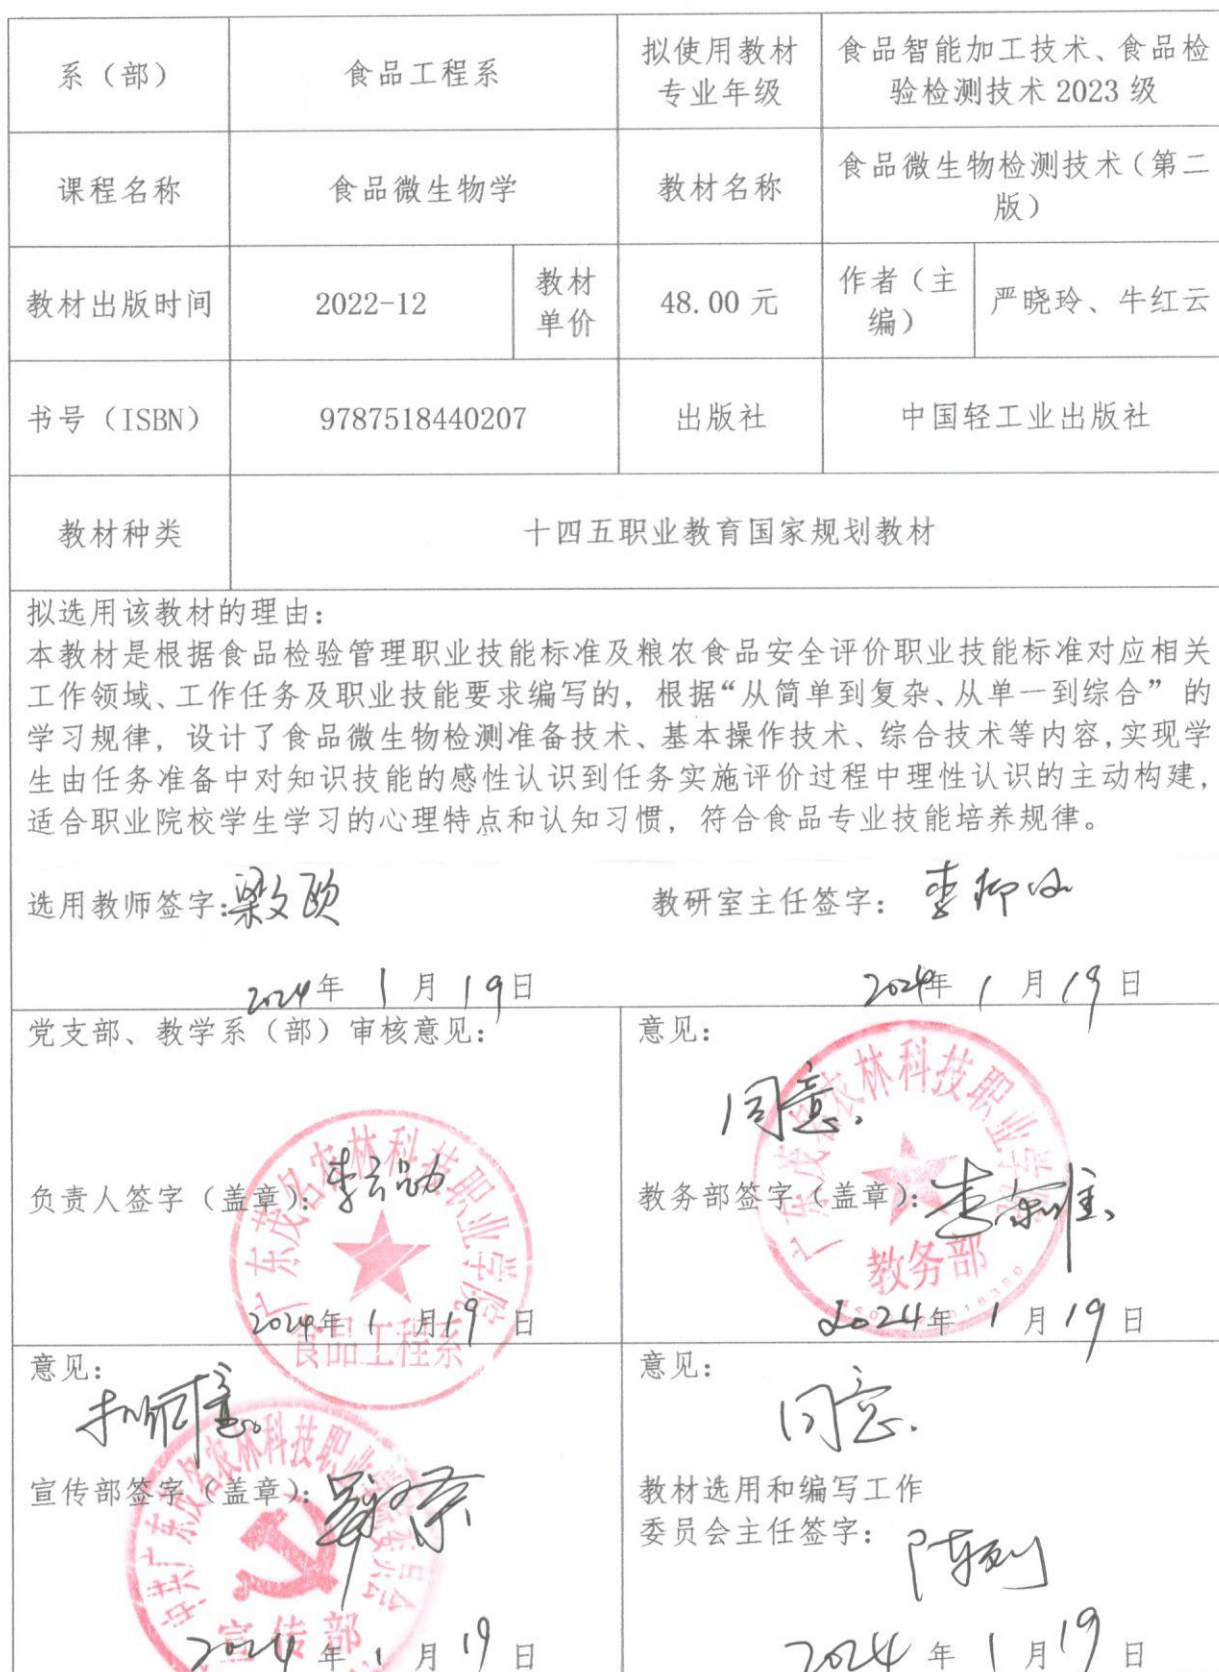 系（部）
食品工程系
拟使用教材
专业年级
食品智能加工技术、食品检
验检测技术 2023 级
课程名称
食品微生物学
教材名称
食品微生物检测技术（第二
版）
教材出版时间
2022-12
教材
单价
48.00 元
作者（主
编）
严晓玲、牛红云
书号（ISBN）
9787518440207
出版社
中国轻工业出版社
教材种类
十四五职业教育国家规划教材
拟选用该教材的理由：
本教材是根据食品检验管理职业技能标准及粮农食品安全评价职业技能标准对应相关
工作领域、工作任务及职业技能要求编写的，根据“从简单到复杂、从单一到综合” 的
学习规律，设计了食品微生物检测准备技术、基本操作技术、综合技术等内容,实现学
生由任务准备中对知识技能的感性认识到任务实施评价过程中理性认识的主动构建，
适合职业院校学生学习的心理特点和认知习惯，符合食品专业技能培养规律。
选用教师签字：
教研室主任签字：
2024年 1 月 19日
2024年 1 月 19 日
党支部、教学系（部）审核意见：
广东茂名农林科技职业学院
负责人签字（盖章）：
2024年 1 月19 日
食品工程系
意见：
同意.
广东茂名农林科技职业学院
教务部签字（盖章）：
教务部
2024年 1 月 19 日
意见：
宣传部签字（盖章）：
中共广东茂名农林科技职业学院委员会
宣传部
2024 年 1 月 19 日
意见：
同意.
教材选用和编写工作
委员会主任签字：
2024 年 1 月 19 日